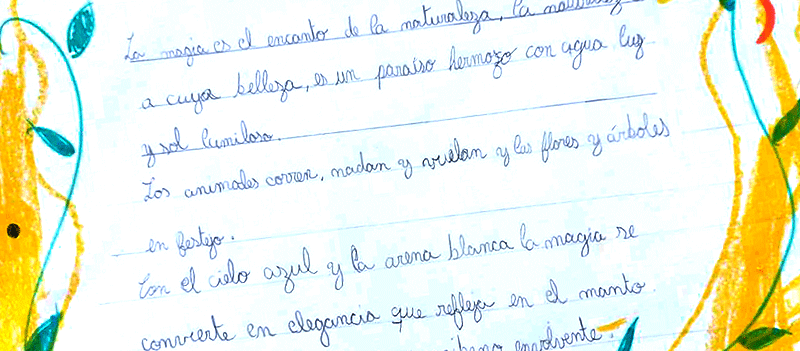 La magia es el encanto de la naturaleza, la
a cuya belleza, es un paraíso hermozo con agua luz
y sol lumiloso.
Los animales corren, nadan y vuelan y las flores y árboles
en festejo.
Con el cielo azul y la arena blanca la magia se
convierte en elegancia que refleja en el manto
envolvente.